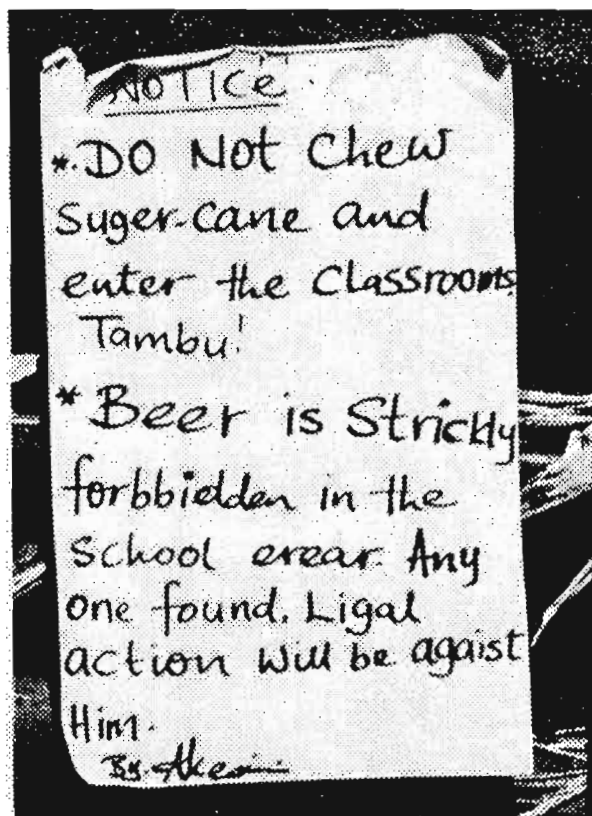 NOTICE.
*. DO Not Chew
Suger-cane and
enter the Classrooms.
Tambu!
* Beer is Strickly
forbbidden in the
School erear. Any
one found. Ligal
action will be agaist
Him.
By.